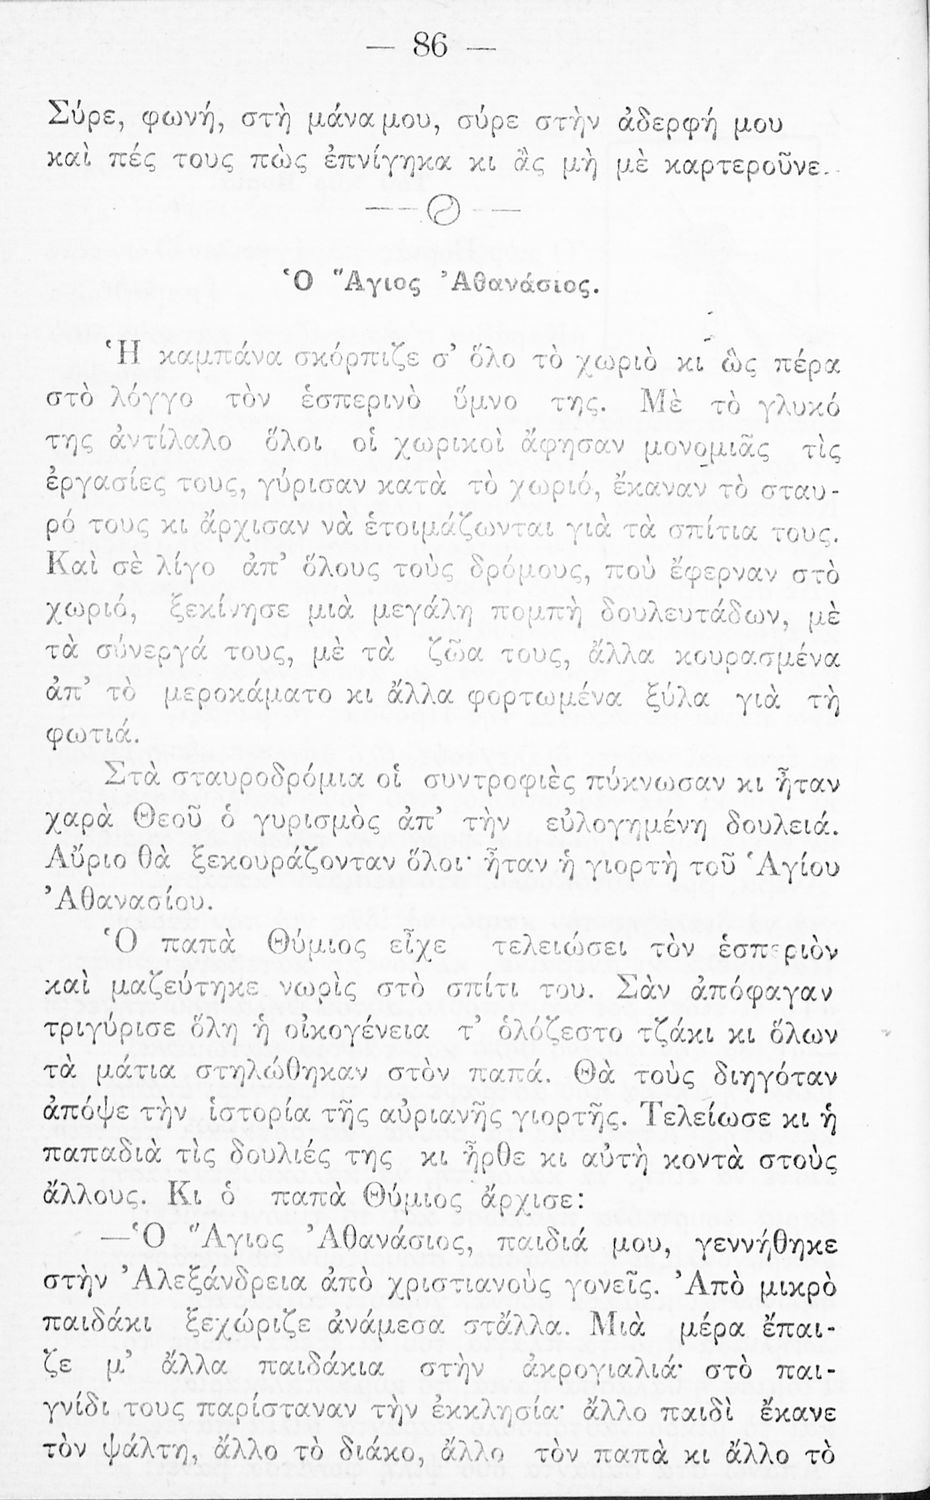 — 86 —
Σύρε, φωνή, στὴ μάνα μου, σύρε στὴν ἀδερφή μου
καὶ πές τους πὼς ἐπνίγηκα κι ἂς μὴ μὲ καρτεροῦνε.
Ὁ Ἅγιος Ἀθανάσιος.
Ἡ καμπάνα σκόρπιζε σ' ὅλο τὸ χωριὸ κι ὣς πέρα
στὸ λόγγο τὸν ἑσπερινὸ ὕμνο της. Μὲ τὸ γλυκό
της ἀντίλαλο ὅλοι οἱ χωρικοὶ ἄφησαν μονομιᾶς τὶς
ἐργασίες τους, γύρισαν κατὰ τὸ χωριό, ἔκαναν τὸ σταυ-
ρό τους κι ἄρχισαν νὰ ἑτοιμάζωνται γιὰ τὰ σπίτια τους.
Καὶ σὲ λίγο ἀπ' ὅλους τοὺς δρόμους, ποὺ ἔφερναν στὸ
χωριό, ξεκίνησε μιὰ μεγάλη πομπὴ δουλευτάδων, μὲ
τὰ σύνεργά τους, μὲ τὰ ζῶα τους, ἄλλα κουρασμένα
ἀπ' τὸ μεροκάματο κι ἄλλα φορτωμένα ξύλα γιὰ τὴ
φωτιά.
Στὰ σταυροδρόμια οἱ συντροφιὲς πύκνωσαν κι ἦταν
χαρὰ Θεοῦ ὁ γυρισμὸς ἀπ' τὴν εὐλογημένη δουλειά.
Αὔριο θὰ ξεκουράζονταν ὅλοι· ἦταν ἡ γιορτὴ τοῦ Ἁγίου
Ἀθανασίου.
Ὁ παπὰ Θύμιος εἶχε τελειώσει τὸν ἑσπεριὸν
καὶ μαζεύτηκε νωρὶς στὸ σπίτι του. Σὰν ἀπόφαγαν
τριγύρισε ὅλη ἡ οἰκογένεια τ' ὁλόζεστο τζάκι κι ὅλων
τὰ μάτια στηλώθηκαν στὸν παπά. Θὰ τοὺς διηγόταν
ἀπόψε τὴν ἱστορία τῆς αὐριανῆς γιορτῆς. Τελείωσε κι ἡ
παπαδιὰ τὶς δουλιές της κι ἦρθε κι αὐτὴ κοντὰ στοὺς
ἄλλους. Κι ὁ παπὰ Θύμιος ἄρχισε:
—Ὁ Ἅγιος Ἀθανάσιος, παιδιά μου, γεννήθηκε
στὴν Ἀλεξάνδρεια ἀπὸ χριστιανοὺς γονεῖς. Ἀπὸ μικρὸ
παιδάκι ξεχώριζε ἀνάμεσα στἄλλα. Μιὰ μέρα ἔπαι-
ζε μ' ἄλλα παιδάκια στὴν ἀκρογιαλιά· στὸ παι-
γνίδι τους παρίσταναν τὴν ἐκκλησία· ἄλλο παιδὶ ἔκανε
τὸν ψάλτη, ἄλλο τὸ διάκο, ἄλλο τὸν παπὰ κι ἄλλο τὸ